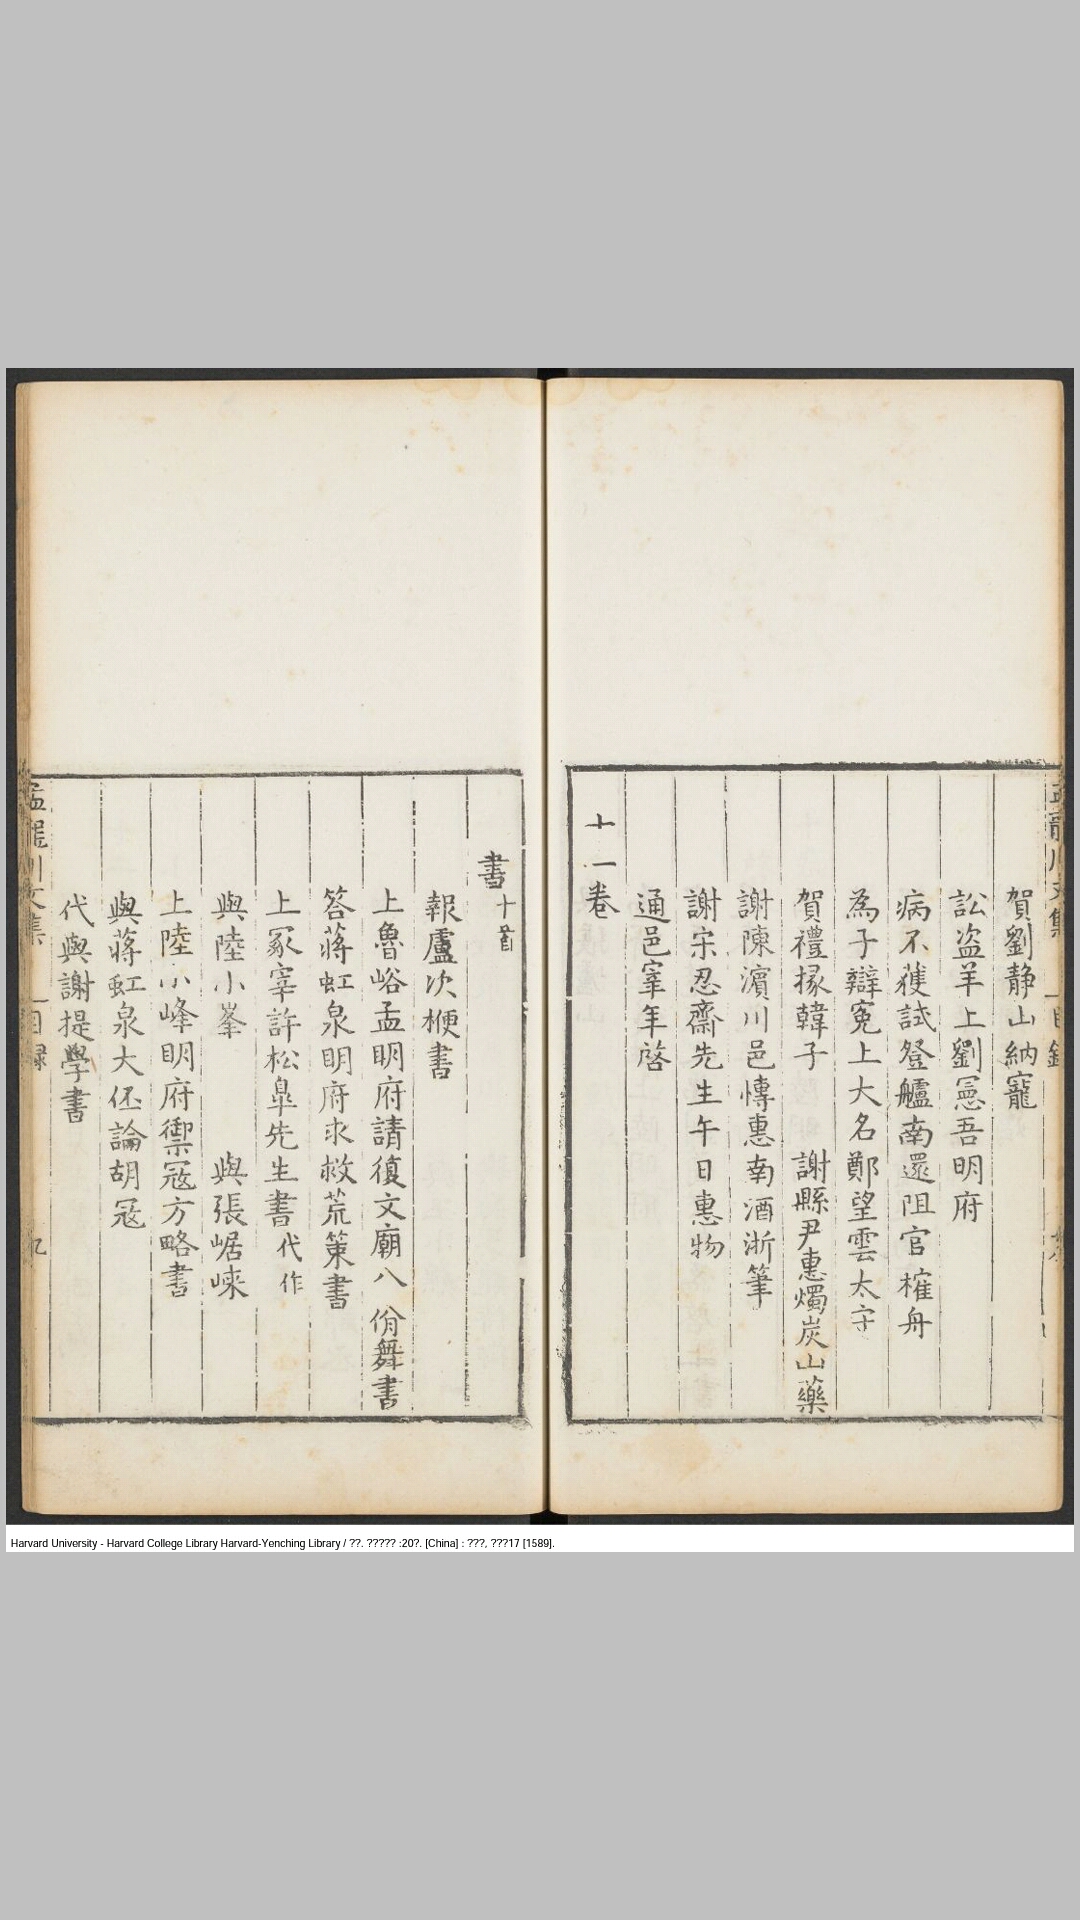 賀劉静山納寵
訟盜羊上劉冦吾明府
病不獲試登艫南還阻官榷舟
為子辯寃上大名鄭望雲太守
賀禮掾韓子 謝縣尹惠燭炭山藥
謝陳濵川邑慱惠南酒浙筆
謝宋忍齋先生午日惠物
通邑宰年啓
十一卷
書十首
報盧次楩書
上魯峪孟明府請復文廟八佾舞書
答蒋虹泉明府求救荒策書
上冢宰許松臯先生書代作
與陸小峯 與張崌崍
上陸小峰明府禦冦方略書
與蒋虹泉大伾論胡冦
代與謝提學書
孟龍川文集 目録 九
Harvard University - Harvard College Library Harvard-Yenching Library / ??. ????? :20?. [China] : ???, ???17 [1589].